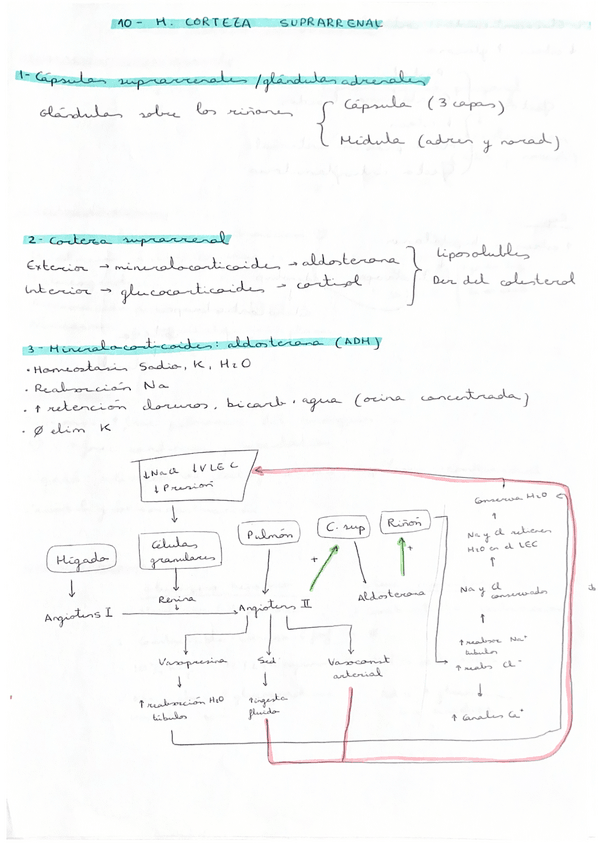 10 - H. CORTEZA SUPRARRENAL
1- Cápsulas suprarrenales / glándulas adrenales
Glándulas sobre los riñones
Cápsula (3 capas)
Médula (adren y norad)
2- Corteza suprarrenal
Exterior → mineralocorticoides → aldosterona
Interior → glucocorticoides → cortisol
Liposolubles
Der del colesterol
3- Mineralocorticoides: aldosterona (ADH)
• Homeostasis Sodio, K, H2O
• Reabsorción Na
• ↑ retención cloruros, bicarb, agua (orina concentrada)
• Ø elim K
↓NaCl ↓VLEC
↓Presión
Hígado
Células
granulares
Pulmón
C. sup
Riñón
Angiotens I
Renina
Angiotens II
+
Aldosterona
+
Vasopresina
Sed
Vasoconst
arterial
↑ reabsorción H2O
túbulos
↑ingesta
fluido
Conserva H2O
↑
Na y Cl retienen
H2O en el LEC
↑
Na y Cl
conservados
↑
↑ reabsor Na+
túbulos
↑ reabs Cl-
↓
↑ Canales